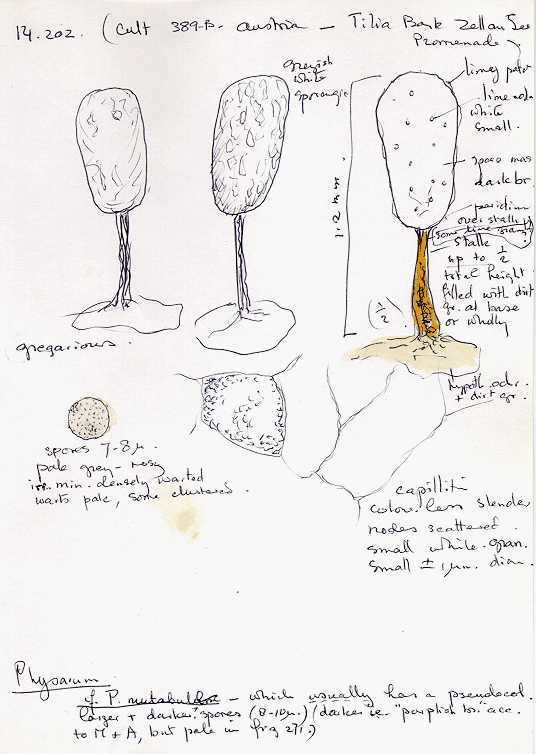 14.202. (Cult 389-B. Austria – Tilia Bark Zell am See
Promenade)
greyish
white
sporangia
limey patch
lime nodes
white
small.
spore mass
dark br.
peridium
over stalk
some lime
stalk
up to 1/2
total height
filled with dirt
gr. at base
or wholly
1.2 mm
(1/2)
hypoth. odr.
+ dirt gr.
gregarious.
spores 7-8 µ.
pale grey-rosy
irr. min. densely warted
warts pale, some clustered.
capilliti
colourless slender
nodes scattered.
small white gran.
small ± 1 µm. diam.
Physarum
cf. P. mutabile – which usually has a pseudocol.
larger + darker spores (8-10µ) (darker ie. "purplish br." acc.
to M + A, but pale in fig 271.)